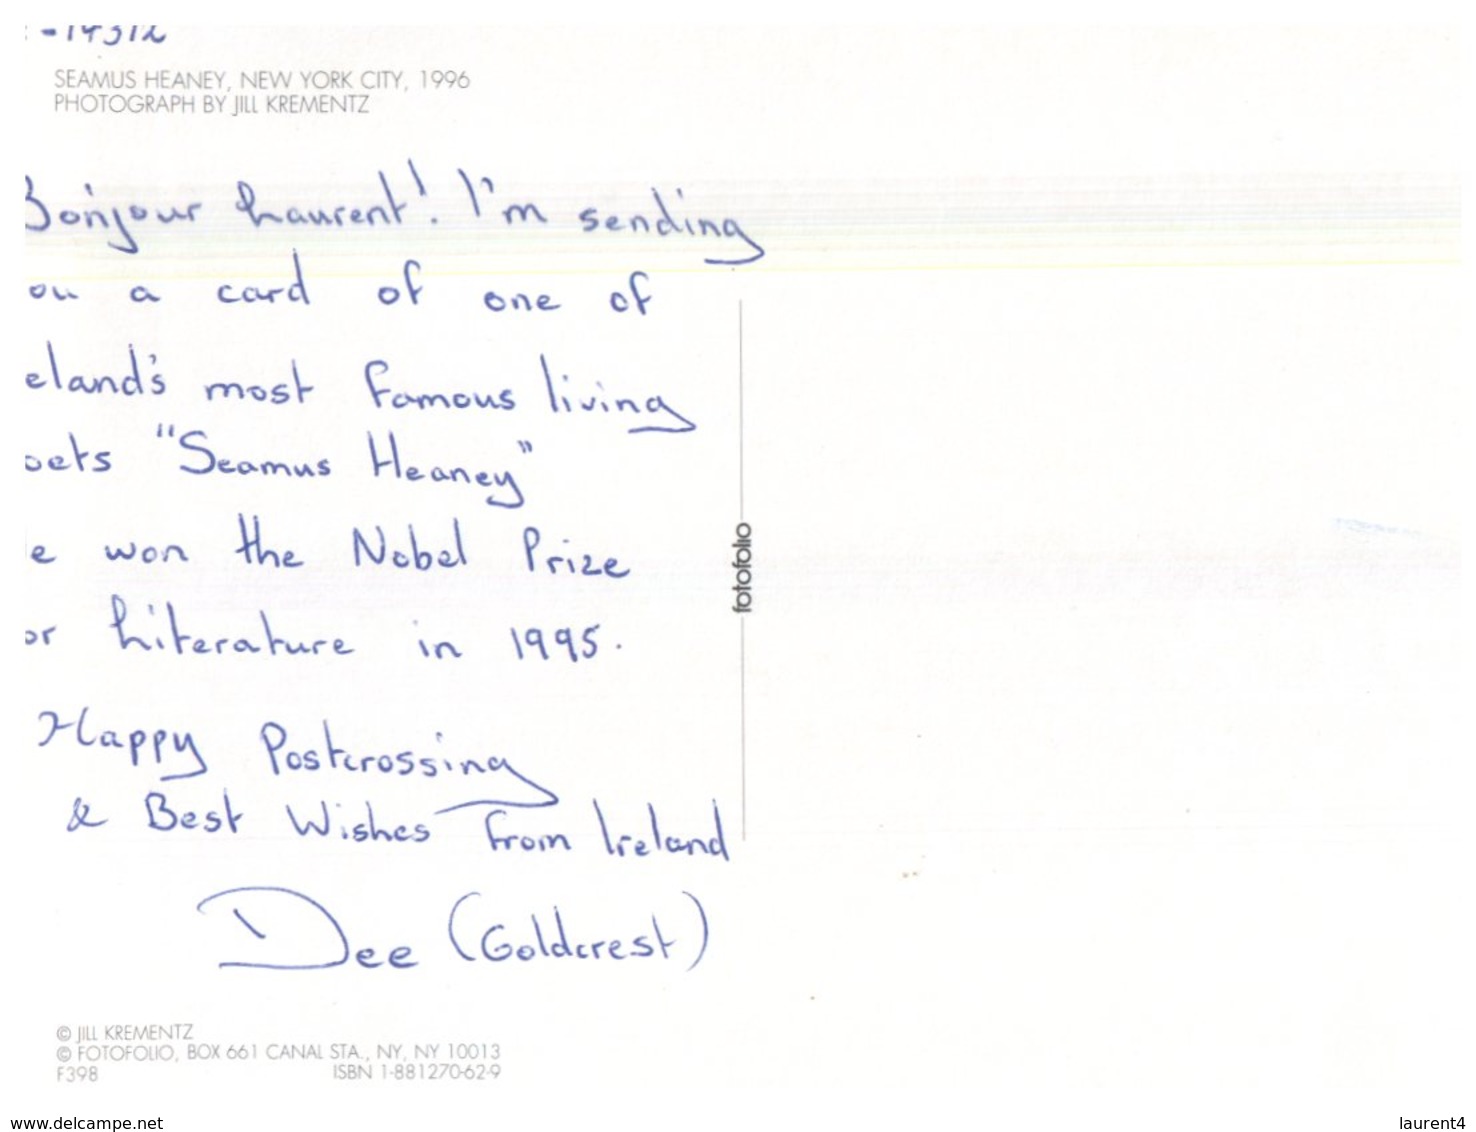 -14312
SEAMUS HEANEY, NEW YORK CITY, 1996
PHOTOGRAPH BY JILL KREMENTZ
Bonjour Laurent! I'm sending
ou a card of one of
eland's most famous living
oets "Seamus Heaney"
e won the Nobel Prize
or Literature in 1995.
Happy Postcrossing
& Best Wishes from Ireland
Dee (Goldcrest)
fotofolio
© JILL KREMENTZ
© FOTOFOLIO, BOX 661 CANAL STA., NY, NY 10013
F398 ISBN 1-881270-62-9
www.delcampe.net laurent4